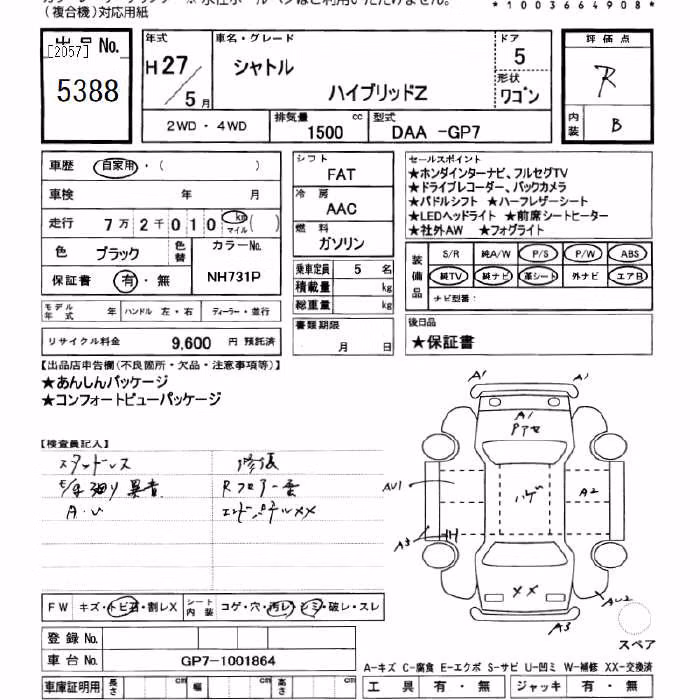 (複合機)対応用紙
*1003664908*
出品 No.
[2057]
5388
年式
H27/5月
車名・グレード
シャトル
ハイブリッドZ
ドア
5
形状
ワゴン
評価点
R
内装
B
2WD・4WD
排気量
1500 cc
型式
DAA -GP7
車歴
自家用・( )
車検 年 月
走行 7万2千010 km マイル( )
色 ブラック
色替
カラーNo.
NH731P
保証書 有・無
シフト
FAT
冷房
AAC
燃料
ガソリン
乗車定員 5 名
積載量 kg
総重量 kg
書類期限
月 日
セールスポイント
★ホンダインターナビ、フルセグTV
★ドライブレコーダー、バックカメラ
★パドルシフト ★ハーフレザーシート
★LEDヘッドライト ★前席シートヒーター
★社外AW ★フォグライト
装備品
S/R 純A/W P/S P/W ABS
純TV 純ナビ 革シート 外ナビ エアB
ナビ型番:
モデル年式 年 ハンドル 左・右 ディーラー・並行
リサイクル料金 9,600 円 預託済
後日品
★保証書
【出品店申告欄(不良箇所・欠品・注意事項等)】
★あんしんパッケージ
★コンフォートビューパッケージ
【検査員記入】
スタッドレス
修復
異音
Rフロアー
A.U
エンドパネルXX
A1
A1
A1
Pアセ
AU1
ハゲ
A2
A3
XX
AU2
A3
スペア
FW キズ・トビ石・割レX
シート内装 コゲ・穴・汚レ・シミ・破レ・スレ
登録 No.
車台 No. GP7-1001864
A-キズ C-腐食 E-エクボ S-サビ U-凹ミ W-補修 XX-交換済
車庫証明用 長さ cm 幅 cm 高さ cm
工具 有・無 ジャッキ 有・無